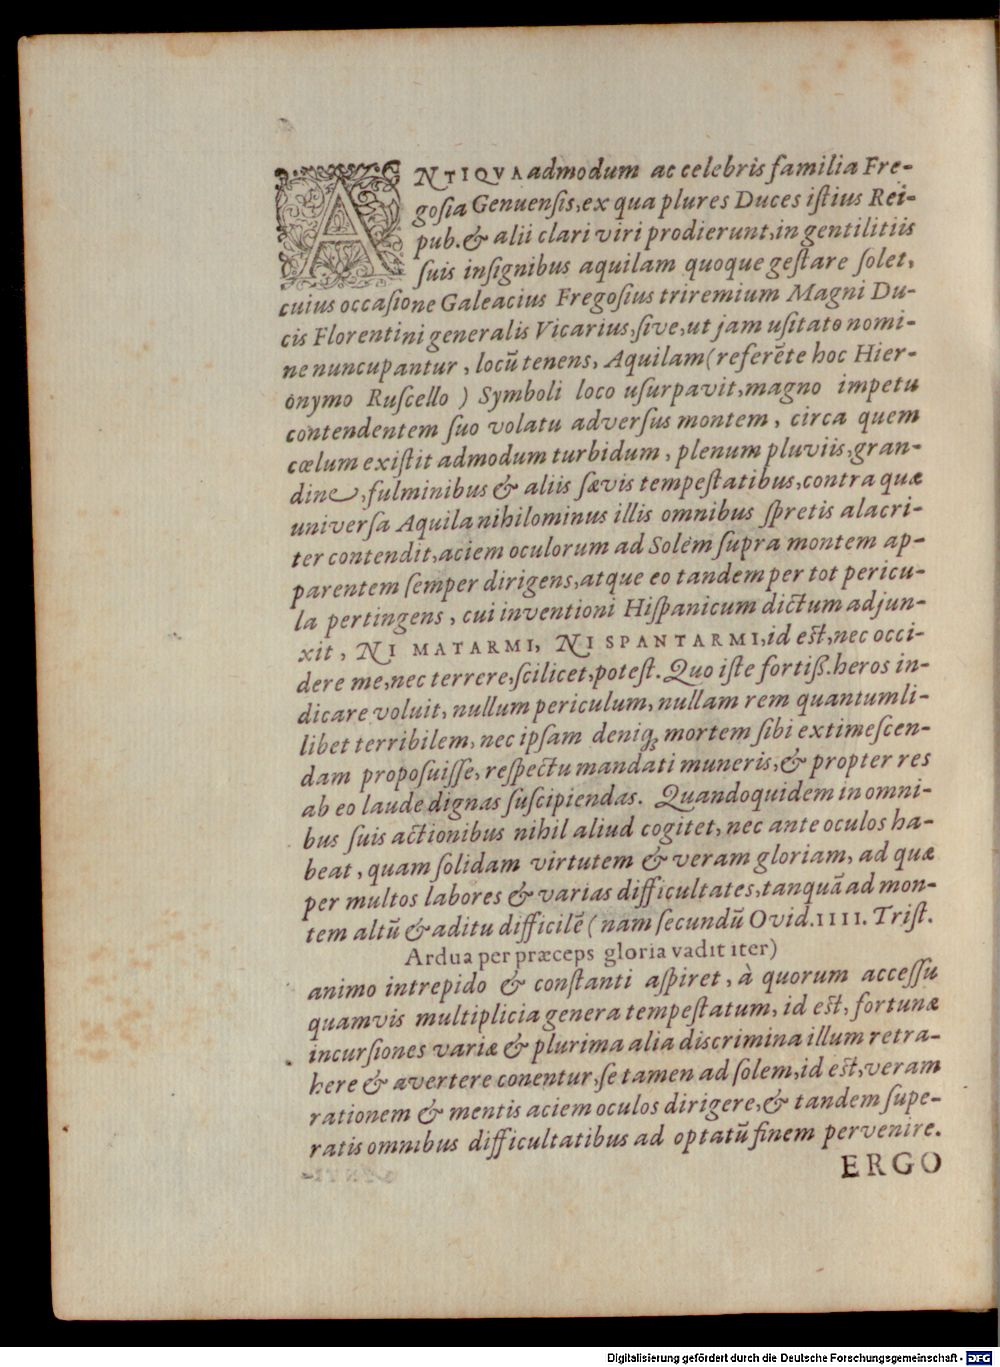 ANTIQVA admodum ac celebris familia Fre-
gosia Genuensis, ex qua plures Duces istius Rei-
pub. & alii clari viri prodierunt, in gentilitiis
suis insignibus aquilam quoque gestare solet,
cuius occasione Galeacius Fregosius triremium Magni Du-
cis Florentini generalis Vicarius, sive, ut jam usitato nomi-
ne nuncupantur, locū tenens, Aquilam (referēte hoc Hier-
onymo Ruscello) Symboli loco usurpavit, magno impetu
contendentem suo volatu adversus montem, circa quem
cœlum existit admodum turbidum, plenum pluviis, gran-
dine, fulminibus & aliis sævis tempestatibus, contra quæ
universa Aquila nihilominus illis omnibus spretis alacri-
ter contendit, aciem oculorum ad Solem supra montem ap-
parentem semper dirigens, atque eo tandem per tot pericu-
la pertingens, cui inventioni Hispanicum dictum adjun-
xit, NI MATARMI, NI SPANTARMI, id est, nec occi-
dere me, nec terrere, scilicet, potest. Quo iste fortiß. heros in-
dicare voluit, nullum periculum, nullam rem quantumli-
libet terribilem, nec ipsam deniq; mortem sibi extimescen-
dam proposuisse, respectu mandati muneris, & propter res
ab eo laude dignas suscipiendas. Quandoquidem in omni-
bus suis actionibus nihil aliud cogitet, nec ante oculos ha-
beat, quam solidam virtutem & veram gloriam, ad quæ
per multos labores & varias difficultates, tanquā ad mon-
tem altū & aditu difficilē (nam secundū Ovid. IIII. Trist.
Ardua per præceps gloria vadit iter)
animo intrepido & constanti aspiret, à quorum accessu
quamvis multiplicia genera tempestatum, id est, fortunæ
incursiones variæ & plurima alia discrimina illum retra-
here & avertere conentur, se tamen ad solem, id est, veram
rationem & mentis aciem oculos dirigere, & tandem supe-
ratis omnibus difficultatibus ad optatū finem pervenire.
ERGO
Digitalisierung gefördert durch die Deutsche Forschungsgemeinschaft - DFG